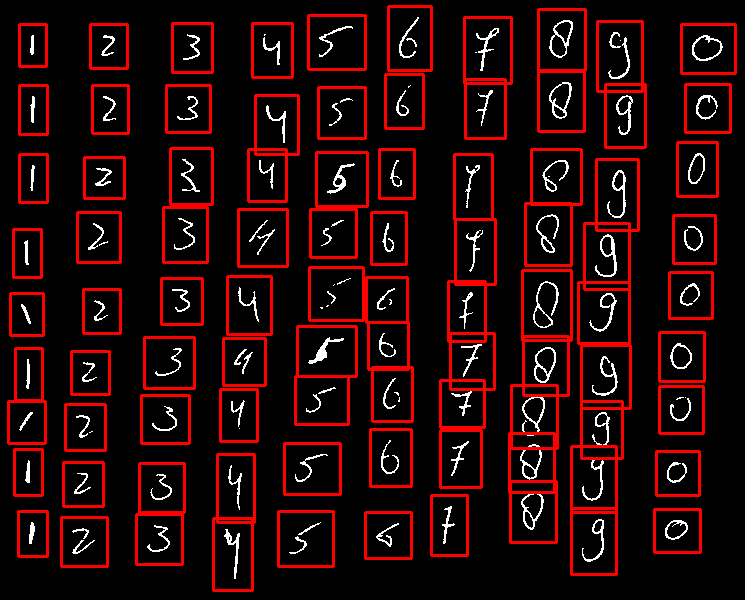 1 2 3 4 5 6 7 8 9 0
1 2 3 4 5 6 7 8 9 0
1 2 3 4 5 6 7 8 9 0
1 2 3 4 5 6 7 8 9 0
1 2 3 4 5 6 7 8 9 0
1 2 3 4 5 6 7 8 9 0
1 2 3 4 5 6 7 8 9 0
1 2 3 4 5 6 7 8 9 0
1 2 3 4 5 6 7 8 9 0